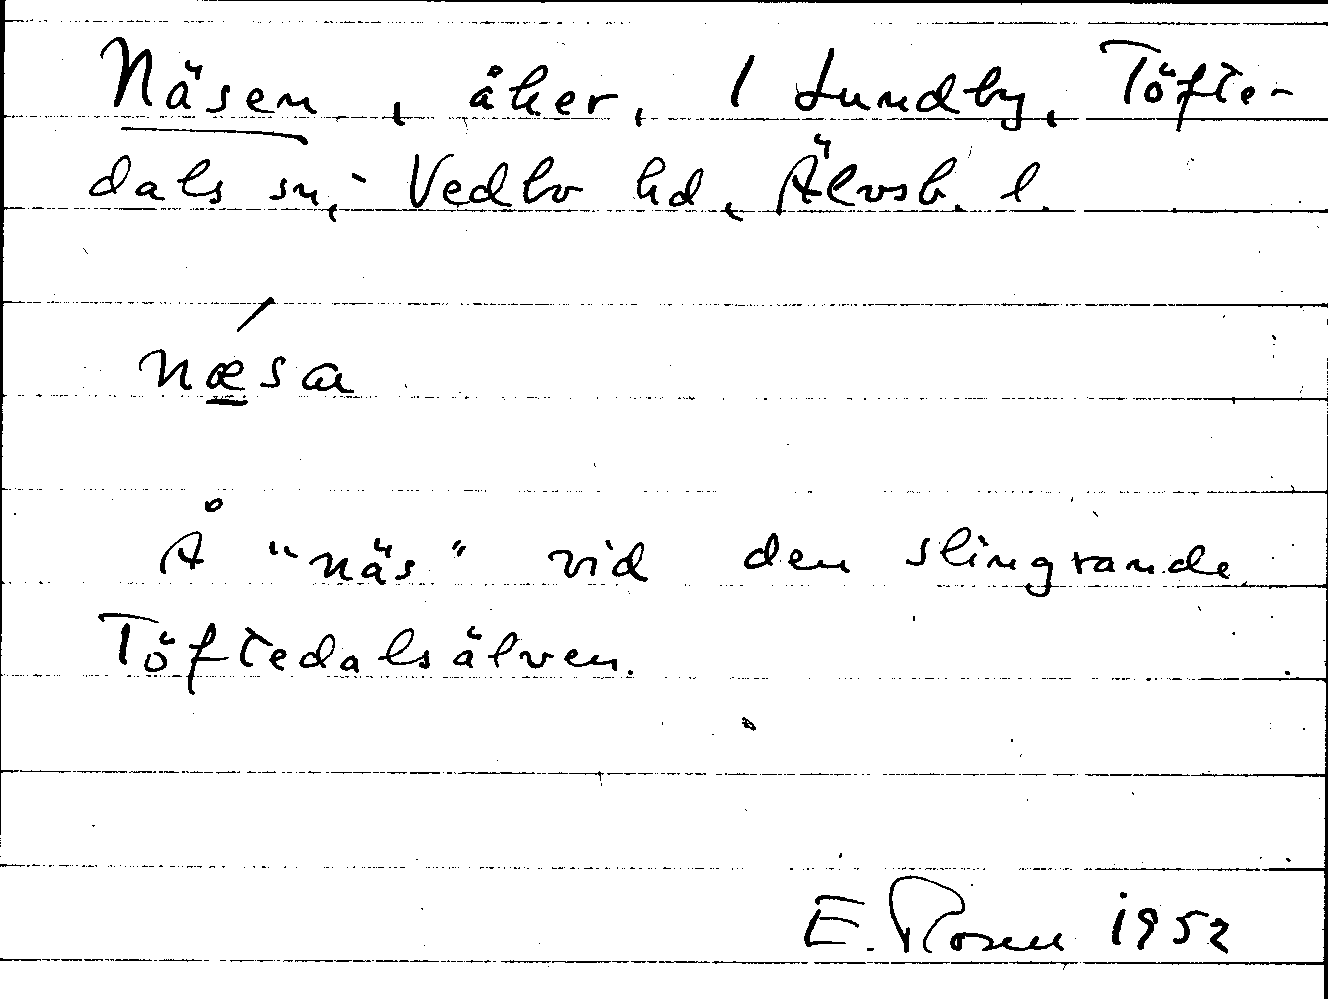 Näsen, åker, 1 Lundby, Töfte-
dals sn, Vedbo hd, Älvsb. l.
nǽ̲sa
Å "näs" vid den slingrande
Töftedalsälven.
E. Rosen 1952